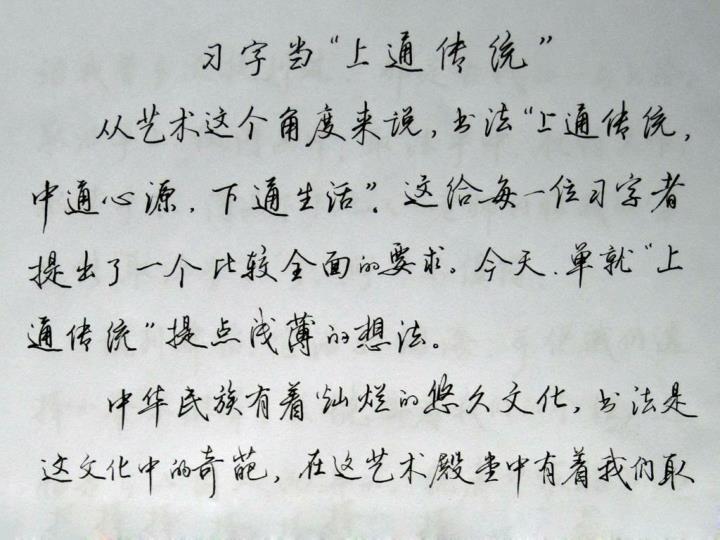 习字当“上通传统”
从艺术这个角度来说,书法“上通传统,
中通心源,下通生活”。这给每一位习字者
提出了一个比较全面的要求。今天、单就“上
通传统”提点浅薄的想法。
中华民族有着灿烂的悠久文化,书法是
这文化中的奇葩,在这艺术殿堂中有着我们取